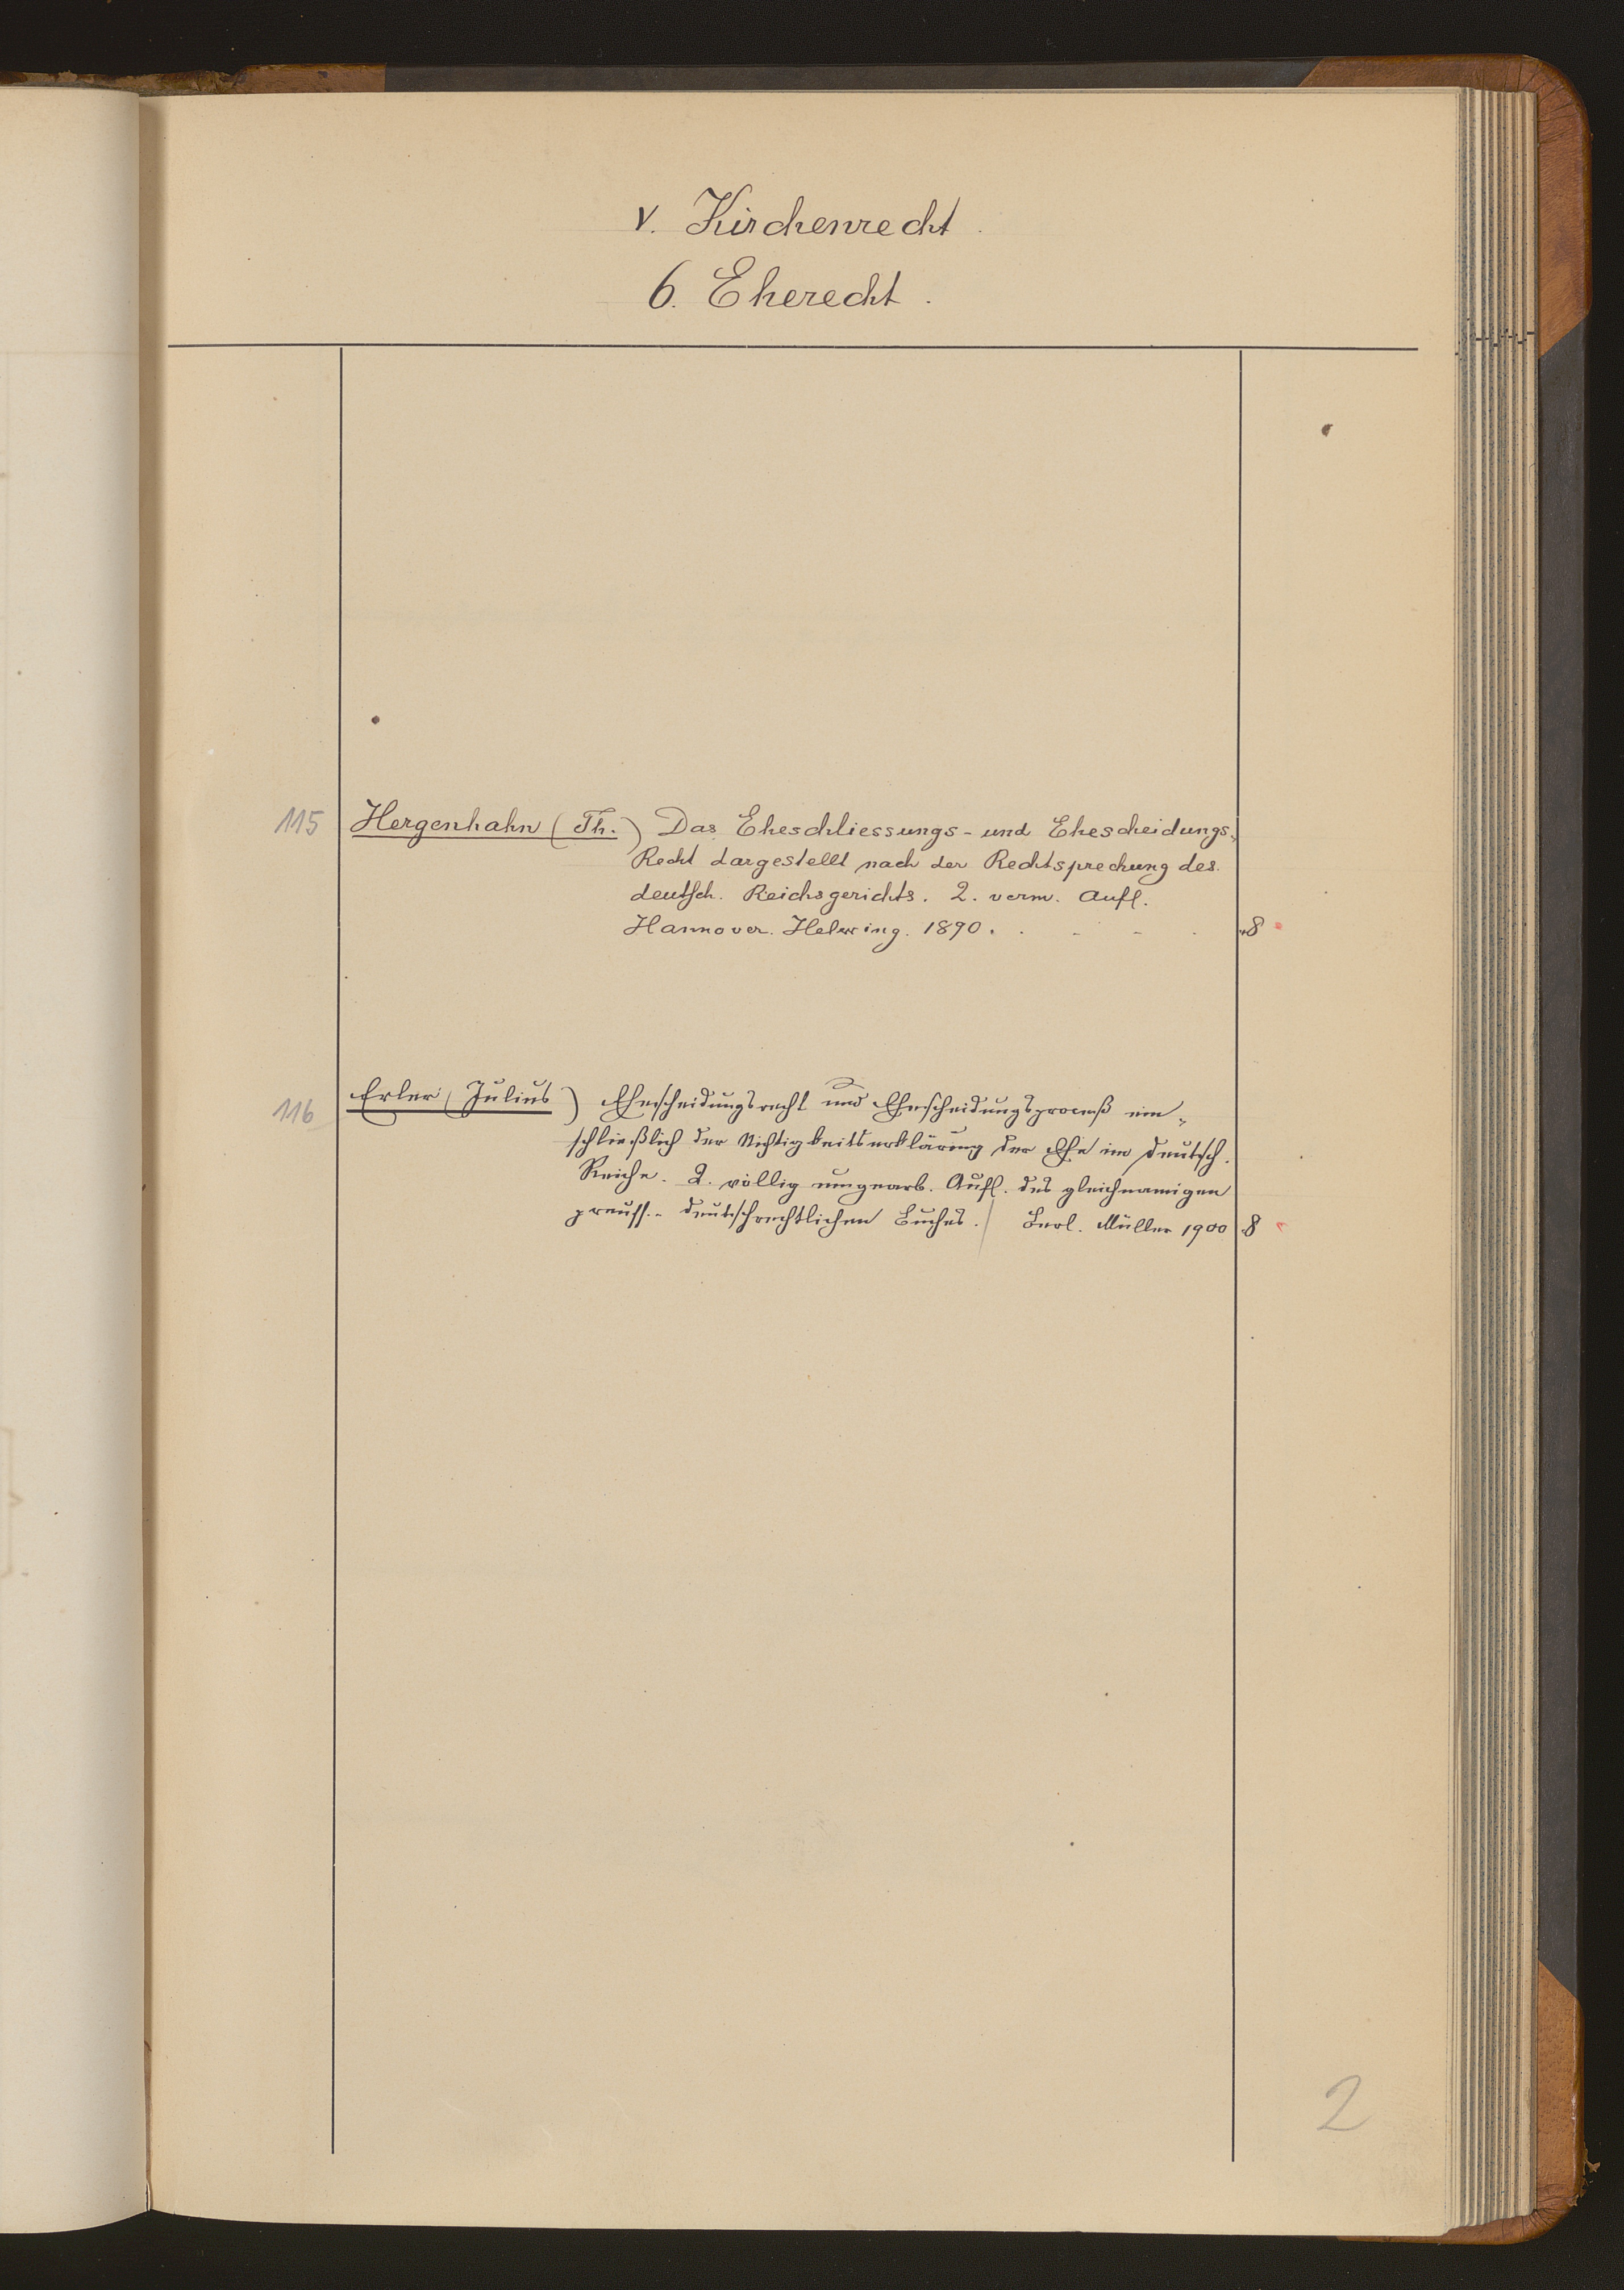 V. Kirchenrecht.
6. Eherecht.
115 Hergenhahn (Th.) Das Eheschliessungs- und Ehescheidungs-
Recht dargestellt nach der Rechtsprechung des
deutsch. Reichsgerichts. 2. verm. Aufl.
Hannover. Helwing. 1890. . - - . 8
116 Erler (Julius) Ehescheidungsrecht und Ehescheidungsproceß ein-
schließlich der Nichtigkeitserklärung der Ehe im deutsch.
Reiche. 2. völlig umgearb. Aufl. des gleichnamigen
preuss.- deutschrechtlichen Buches. / Berl. Müller 1900 8
2